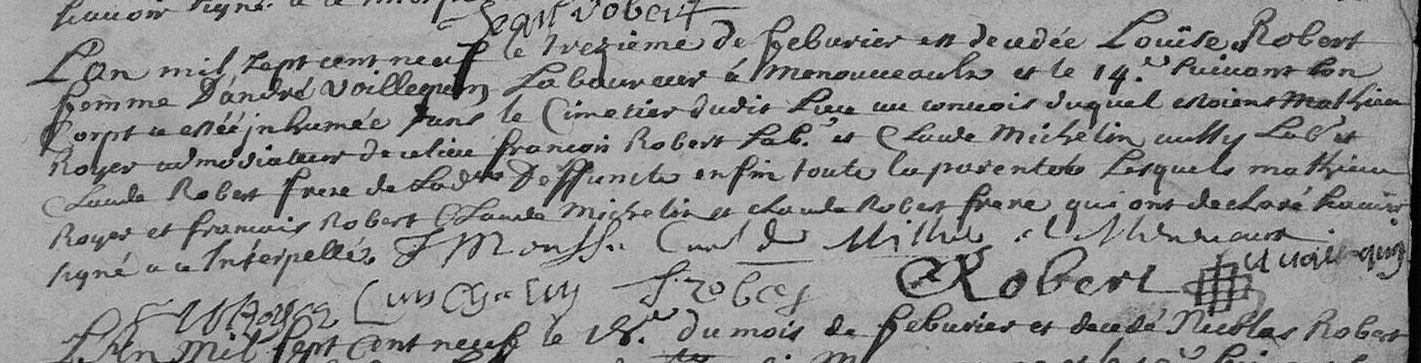 scavoir signé a ce Interpe
Jean Robert
L'an mil sept cent neuf le trezieme de feburier est decedée Louïse Robert
femme D'andré Voillequin Laboureur à Menouveaulx et le 14.e suivant son
Corpt a estée jnhumée dans le Cimetier dudit Lieu au convois duquel estoient Mathieu
Royer admodiateur de ce lieu françois Robert Lab.r et Claude Michelin aussy Lab.r et
Claude Robert frere de Lad.te Deffuncte enfin toute la parenté Lesquels mathieu
Royer et francois Robert Claude Michelin et claude Robert frere qui ont declaré scavoir
signé a ce Interpellé. Curé de
M Royer F Robert Robert
L'An mil sept Cent neuf le 18.e du mois de feburier est decedé Nicolas Robert